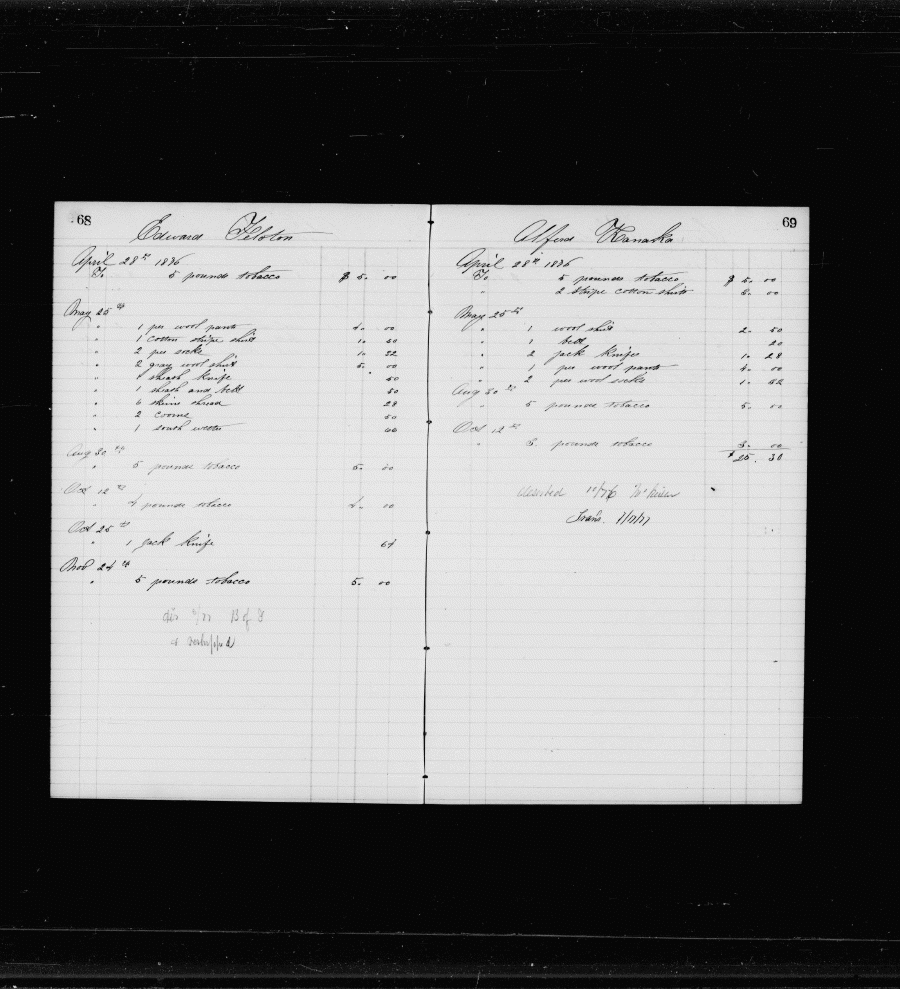 68
Edward Feloton
April 28th 1896
To 5 pounds tobacco $ 5. 00
May 25th
" 1 per wool pants 4. 00
" 1 cotton stripe shirt 1. 50
" 2 pers socks 1. 32
" 2 gray wool shirt 5. 00
" 1 sheath knife 50
" 1 sheath and belt 50
" 6 skeins thread 28
" 2 combs 50
" 1 south wester 66
Aug 30th
" 5 pounds tobacco 5. 00
Oct 12th
" 4 pounds tobacco 4. 00
Oct 25th
" 1 jack knife 64
Nov 24th
" 5 pounds tobacco 5. 00
69
Alferd Kanaka
April 28th 1896
To 5 pounds tobacco $ 5. 00
" 2 stripe cotton shirts 3. 00
May 25th
" 1 wool shirt 2. 50
" 1 belt 20
" 2 jack knifes 1. 28
" 1 per wool pants 4. 00
" 2 pers wool socks 1. 32
Aug 30th
" 5 pounds tobacco 5. 00
Oct 12th
" 3 pounds tobacco 3. 00
$ 25. 30
Deserted
Trans.